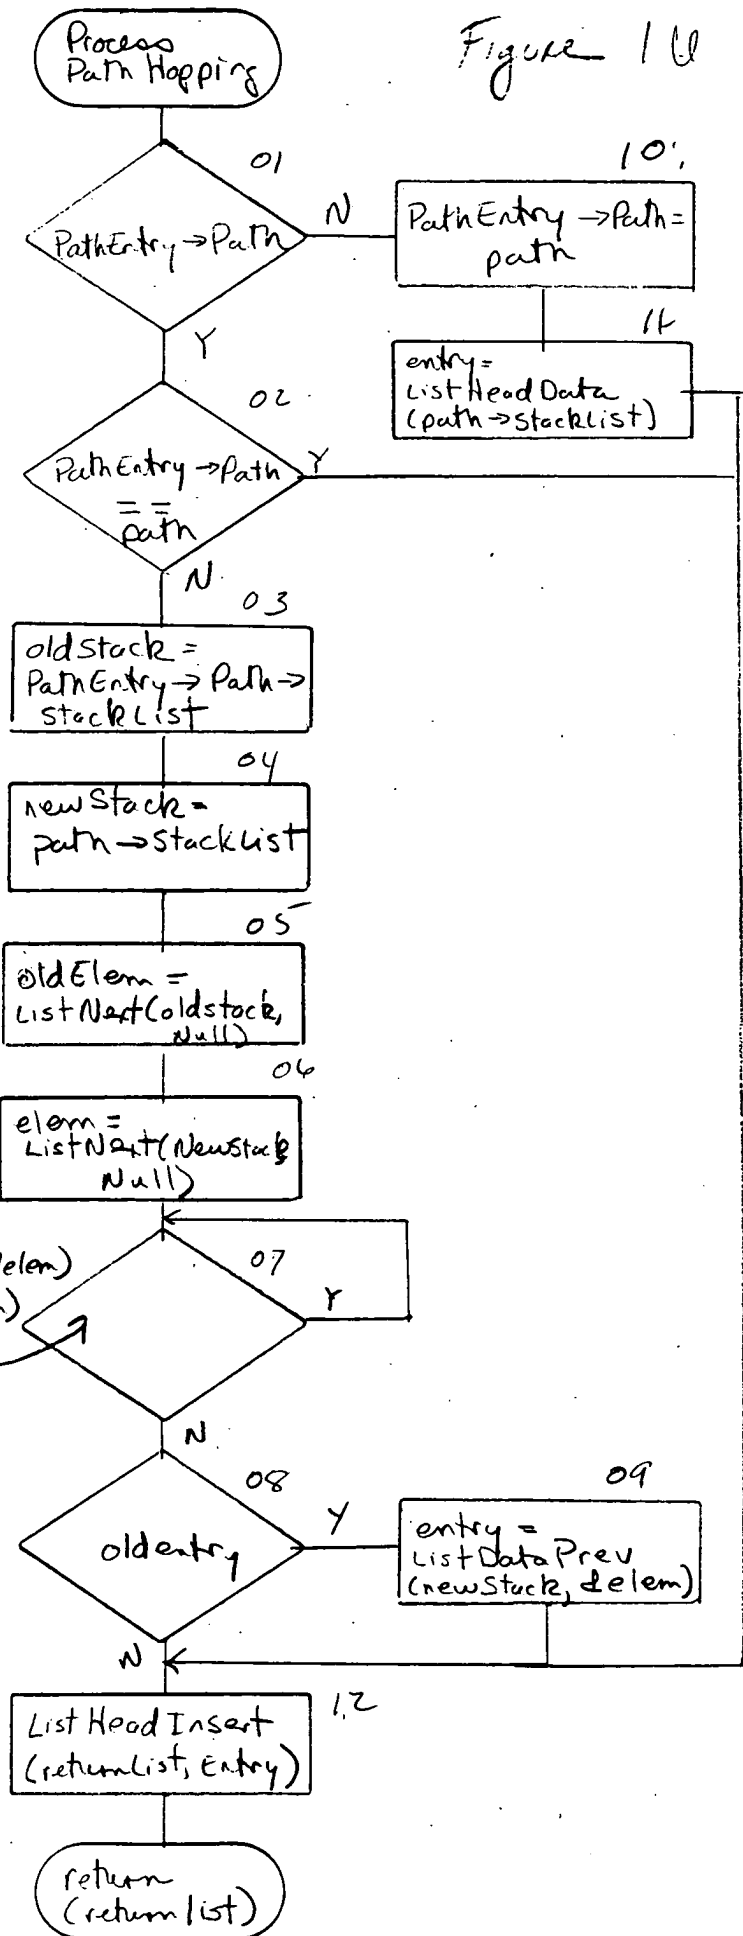 Process
Path Hopping
Figure 16
01
PathEntry → Path
N
Y
10
PathEntry → Path =
path
11
entry =
ListHeadData
(path → stackList)
02
PathEntry → Path
==
path
Y
N
03
oldStack =
PathEntry → Path →
stackList
04
newStack =
path → StackList
05
oldElem =
ListNext(oldstack,
Null)
06
elem =
ListNext(NewStack,
Null)
elem)
07
Y
N
08
oldentry
Y
N
09
entry =
ListDataPrev
(newStack, &elem)
12
List Head Insert
(returnList, Entry)
return
(returnlist)